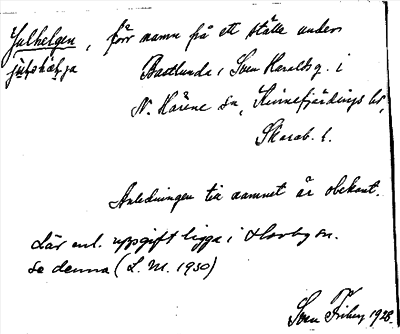 Julhelgen, förr namn på ett ställe under
Bastlunda, Sven Haraldsg. i
N. Härene sn, Kinnefjärdings hd,
Skarab. l.
Anledningen till namnet är obekant.
Lär enl. uppgift ligga i
se denna (L. M. 1950)
Sven 1928.